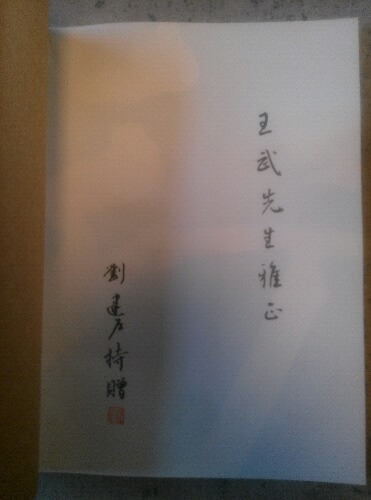 王武先生雅正
劉建持贈